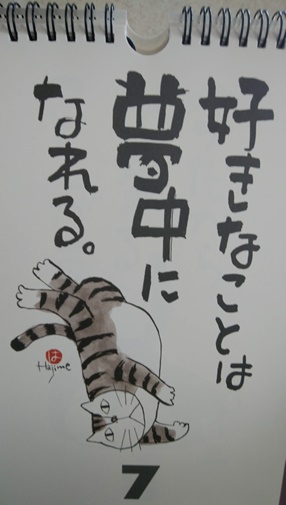 好きなことは
夢中に
なれる。
は
Hajime
7